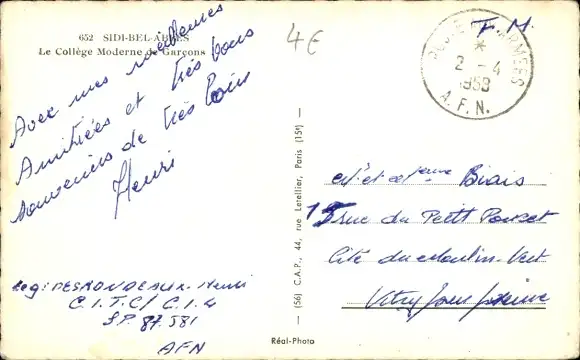 652 SIDI-BEL-ABBES
Le Collège Moderne de Garçons
4€
F. M.
POSTE AUX ARMEES
*
2 - 4
1958
A.F.N.
Avec mes meilleures
Amitiées et très bons
souvenirs de très loin
Henri
Leg: DESRONDEAUX Henri
C.I.T.C/ C.I.4
S.P. 87.581
AFN
Mr et Mme Biais
15 rue du Petit Poucet
Cité du Moulin-Vert
Vitry sur Seine
(56) C.A.P., 44, rue Letellier, Paris (15e)
Réal-Photo